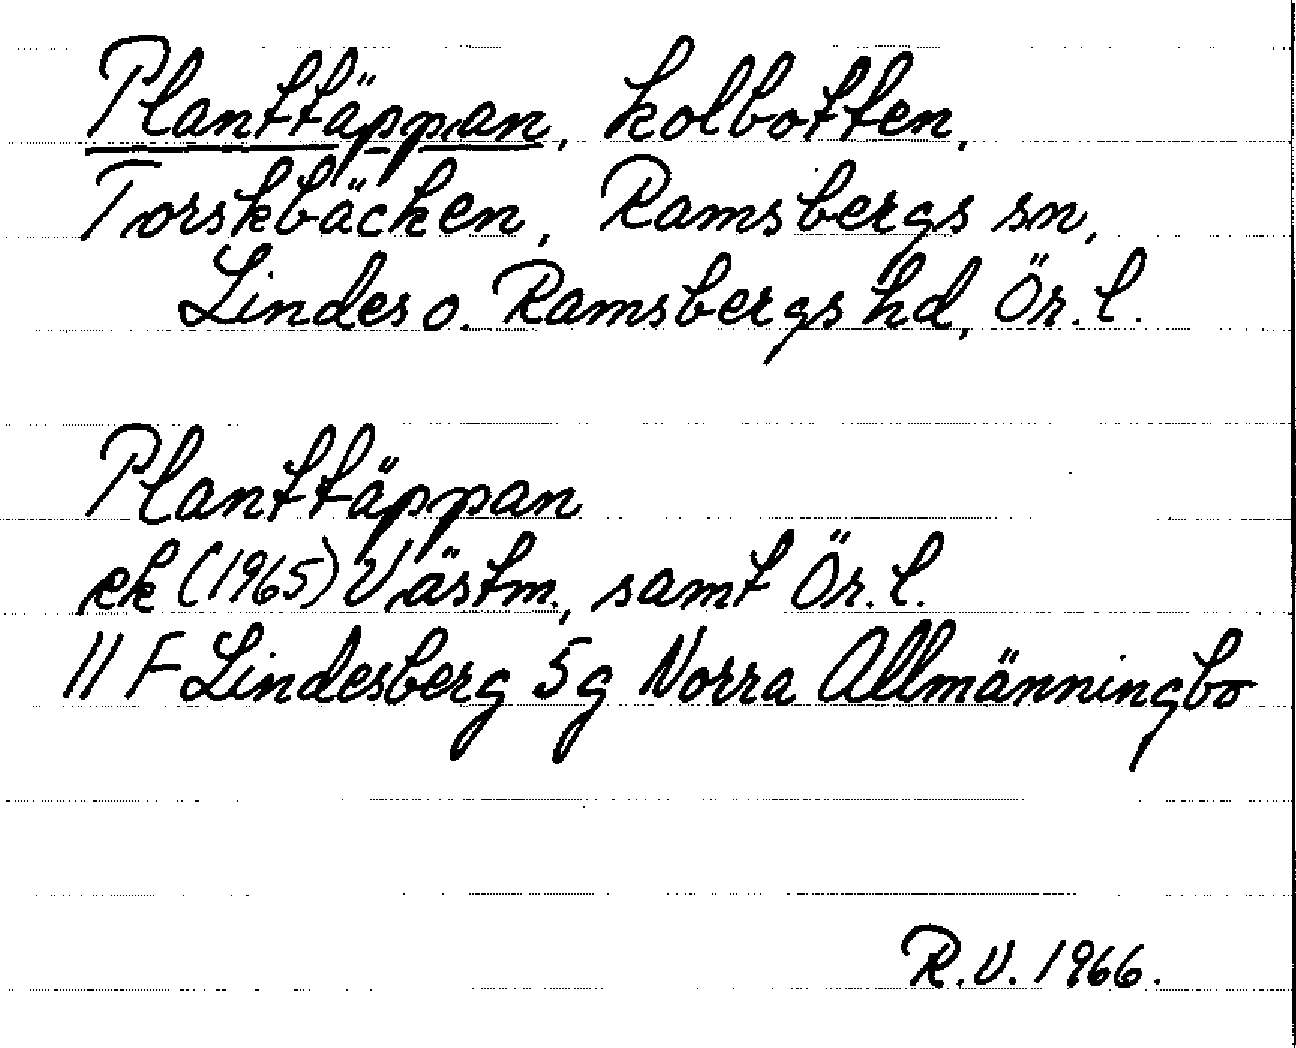 Planttäppan, kolbotten,
Torskbäcken, Ramsbergs sn,
Lindes o. Ramsbergs hd, Ör. l.
Planttäppan
ek (1965) Västm., samt Ör. l.
11 F Lindesberg 5g Norra Allmänningbo
R.V. 1966.